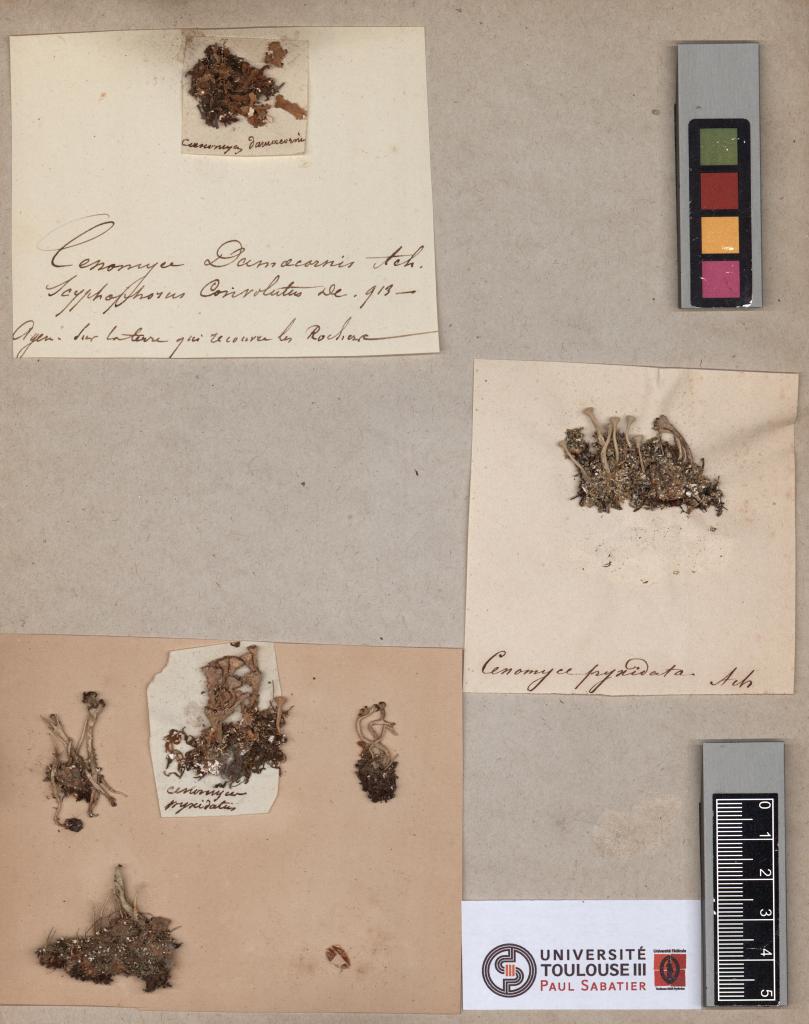 cenomyce damaecornis
Cenomyce Damaecornis Ach.
Scyphophorus Convolutus De. 913 —
Agen. Sur la terre qui recouvre les Rochers
Cenomyce pyxidata. Ach
cenomyce
pyxidatus
0
1
2
3
4
5
UNIVERSITÉ
TOULOUSE III
PAUL SABATIER
Université Fédérale